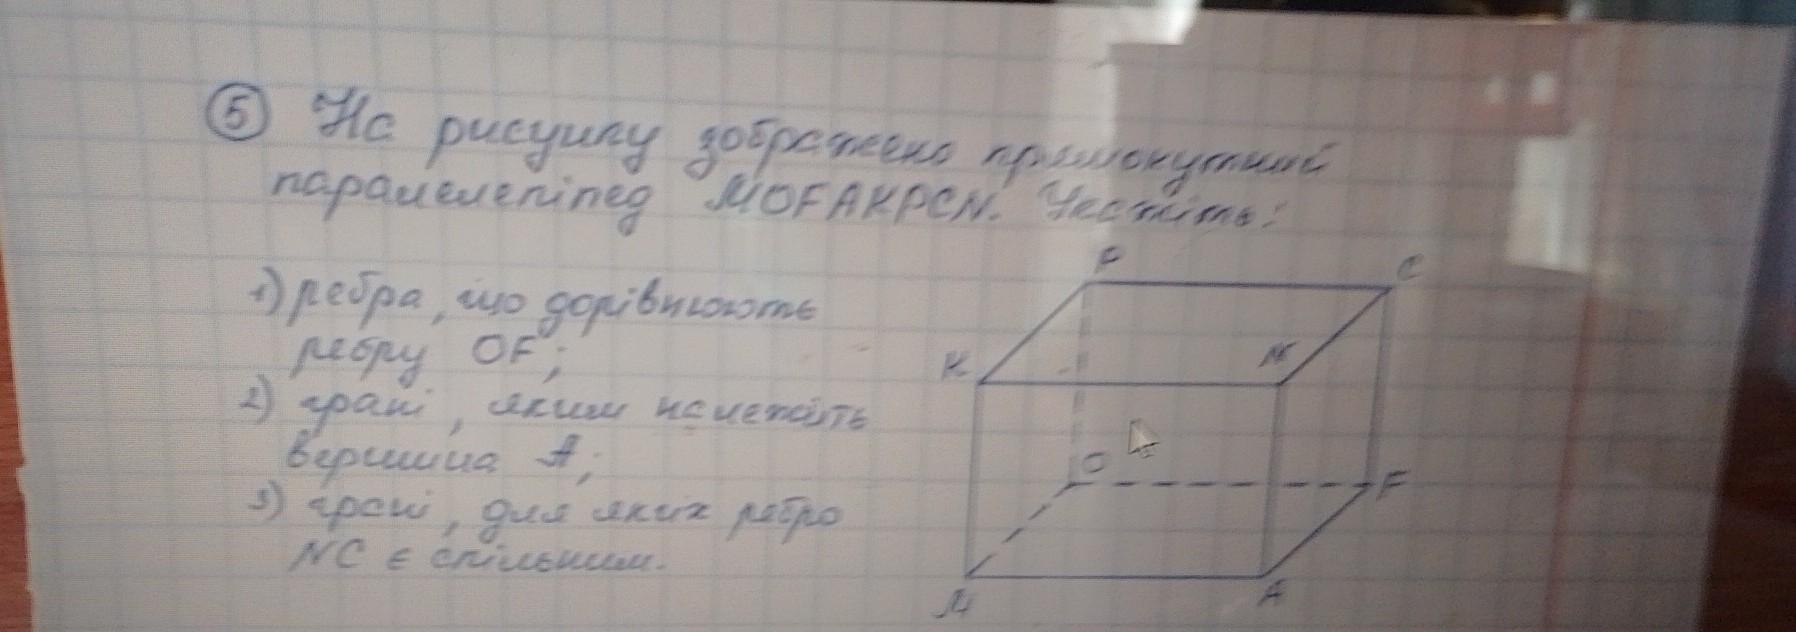 5 На рисунку зображено прямокутний
паралелепіпед MOFAKPCN. Укажіть:
1) ребра, що дорівнюють
ребру OF;
2) грані, яким належить
вершина A;
3) грані, для яких ребро
NC є спільним.
P
C
K
N
O
F
M
A